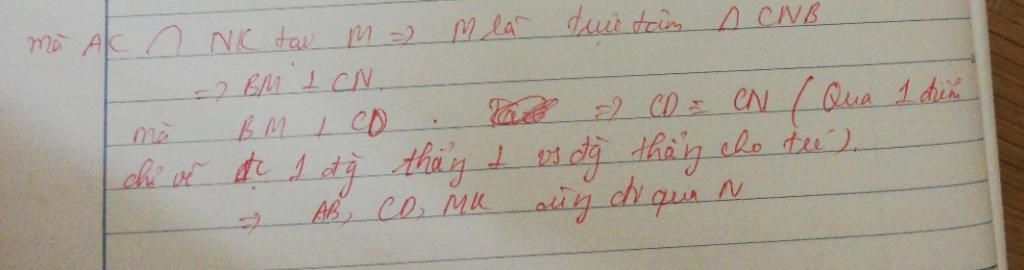 mà AC ∩ NK tại M => M là trực tâm Δ CNB
=> BM ⊥ CN.
mà BM ⊥ CD . => CD ≡ CN ( Qua 1 điểm
chỉ vẽ đc 1 đg̀ thẳng ⊥ vs đg̀ thẳng cho trc ).
=> AB, CD, MK cùng đi qua N